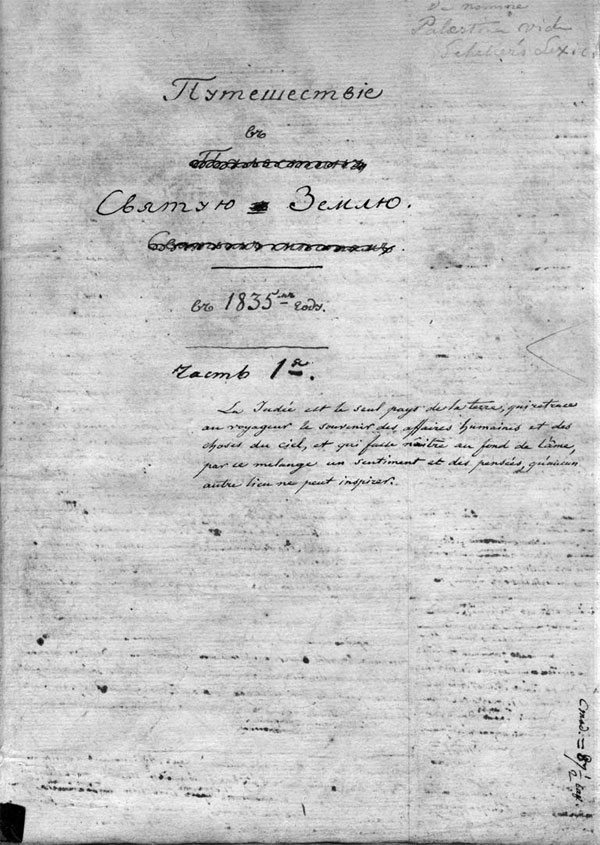 de nomine
Palæstina vid
Lexic.
Путешествіе
въ
Святую Землю.
въ 1835мъ году.
Часть 1я.
La Judée est le seul pays de la terre, qui retrace
au voyageur le souvenir des affaires humaines et des
choses du ciel, et qui fasse naître au fond de l'âme,
par ce melange un sentiment et des pensées, qu'aucun
autre lieu ne peut inspirer.
= 87 1/2